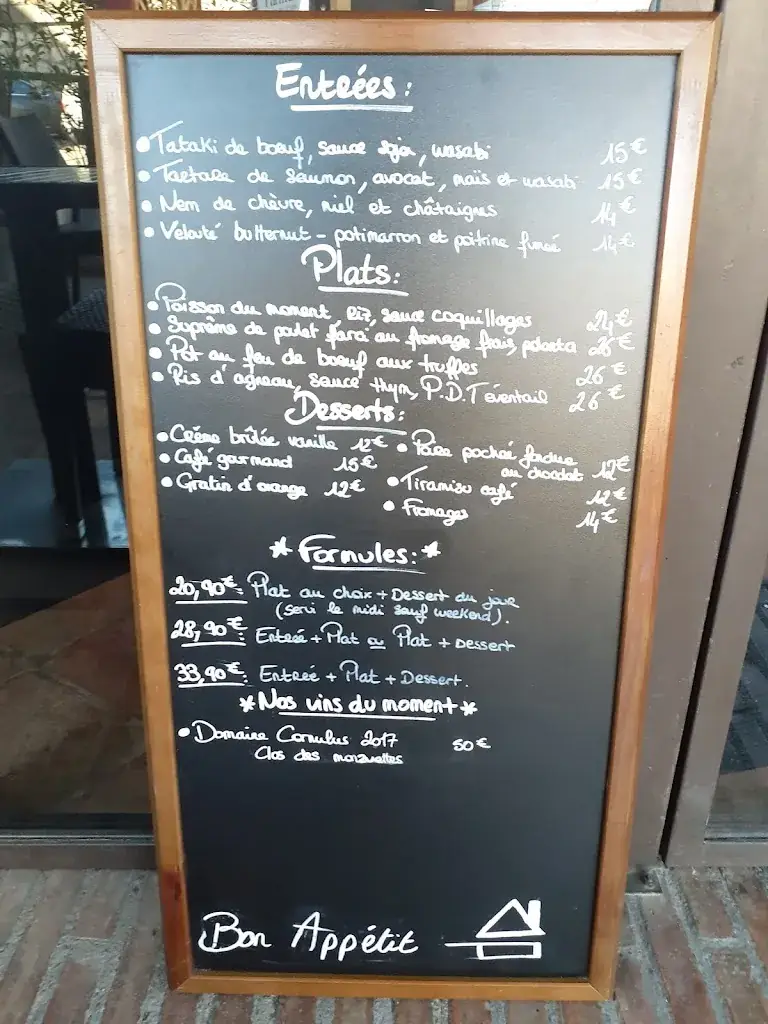 Entrées:
• Tataki de boeuf, sauce soja, wasabi 15€
• Tartare de saumon, avocat, maïs et wasabi 15€
• Nem de chèvre, miel et châtaignes 14€
• Velouté butternut - potimarron et poitrine fumée 14€
Plats:
• Poisson du moment, riz, sauce coquillages 24€
• Suprême de poulet farci au fromage frais, polenta 26€
• Pot au feu de boeuf aux truffes 26€
• Ris d'agneau, sauce thym, P.D.T éventail 26€
Desserts:
• Crème brûlée vanille 12€
• Café gourmand 15€
• Gratin d'orange 12€
• Poire pochée fondue
au chocolat 12€
• Tiramisu café 12€
• Fromages 14€
* Formules: *
20,90€: Plat au choix + Dessert du jour
(Servi le midi sauf weekend).
28,90€: Entrée + Plat ou Plat + Dessert
33,90€: Entrée + Plat + Dessert.
* Nos vins du moment *
• Domaine Cornulus 2017 50€
Clos des
Bon Appétit